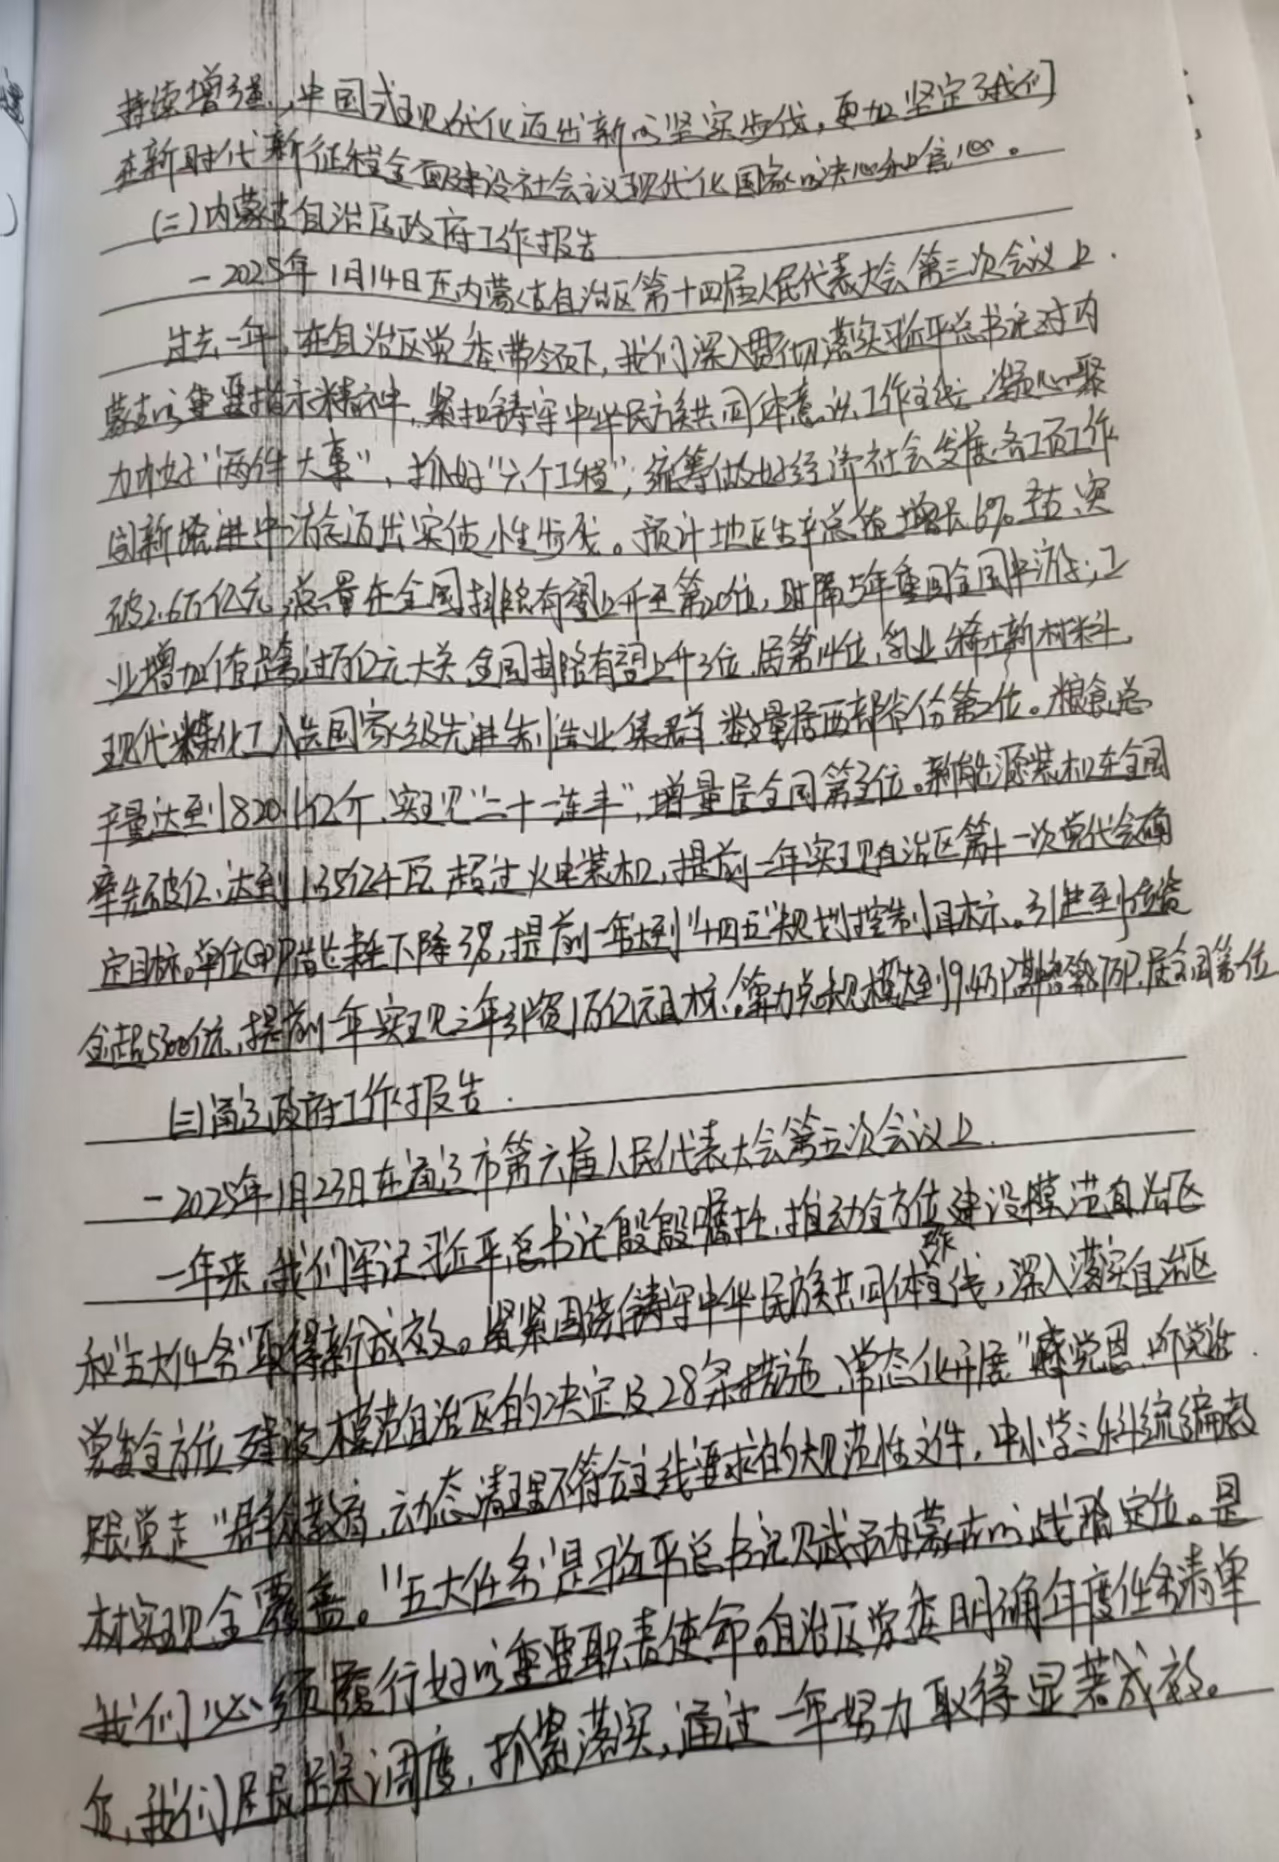 持续增强，中国式现代化迈出新的坚实步伐，更加坚定了我们
在新时代新征程全面建设社会主义现代化国家的决心和信心。
(二)内蒙古自治区政府工作报告
—2025年1月14日在内蒙古自治区第十四届人民代表大会第三次会议上.
过去一年，在自治区党委带领下，我们深入贯彻落实习近平总书记对内
蒙古的重要指示精神，紧扣铸牢中华民族共同体意识工作主线，凝心聚
力办好"两件大事"，抓好"六个工程"，统筹做好经济社会发展各项工作
闯新路进中游迈出实质性步伐。预计地区生产总值增长6%左右，突
破2.6万亿元，总量在全国排位有望上升至第20位，时隔5年重回全国中游；工
业增加值跨过万亿元大关，全国排位有望上升3位，居第14位，乳业、稀土新材料、
现代煤化工入选国家级先进制造业集群，数量居西部省份第2位。粮食总
产量达到820.1亿斤，实现"二十一连丰"，增量居全国第3位。新能源装机在全国
率先破亿，达到1.35亿千瓦，超过火电装机，提前一年实现自治区第十一次党代会确
定目标。单位GDP能耗下降3%，提前一年达到"十四五"规划控制目标。引进到位资
金超5300亿元，提前一年实现三年引资1万亿元目标。算力总规模达到19.4万P，其中智算
居全国第1位
(三)通辽政府工作报告.
—2025年1月23日在通辽市第六届人民代表大会第五次会议上.
一年来，我们牢记习近平总书记殷殷嘱托，推动全方位建设模范自治区
和"五大任务"取得新成效。紧紧围绕铸牢中华民族共同体主线，深入落实自治区
党委全方位建设模范自治区的决定及28条措施，常态化开展"感党恩、听党话、
跟党走"群众教育，动态清理不符合主线要求的规范性文件，中小学三科统编教
材实现全覆盖。"五大任务"是习近平总书记赋予内蒙古的战略定位。是
我们必须履行好的重要职责使命。自治区党委明确年度任务清单
后，我们调度，抓紧落实，通过一年努力取得显著成效。